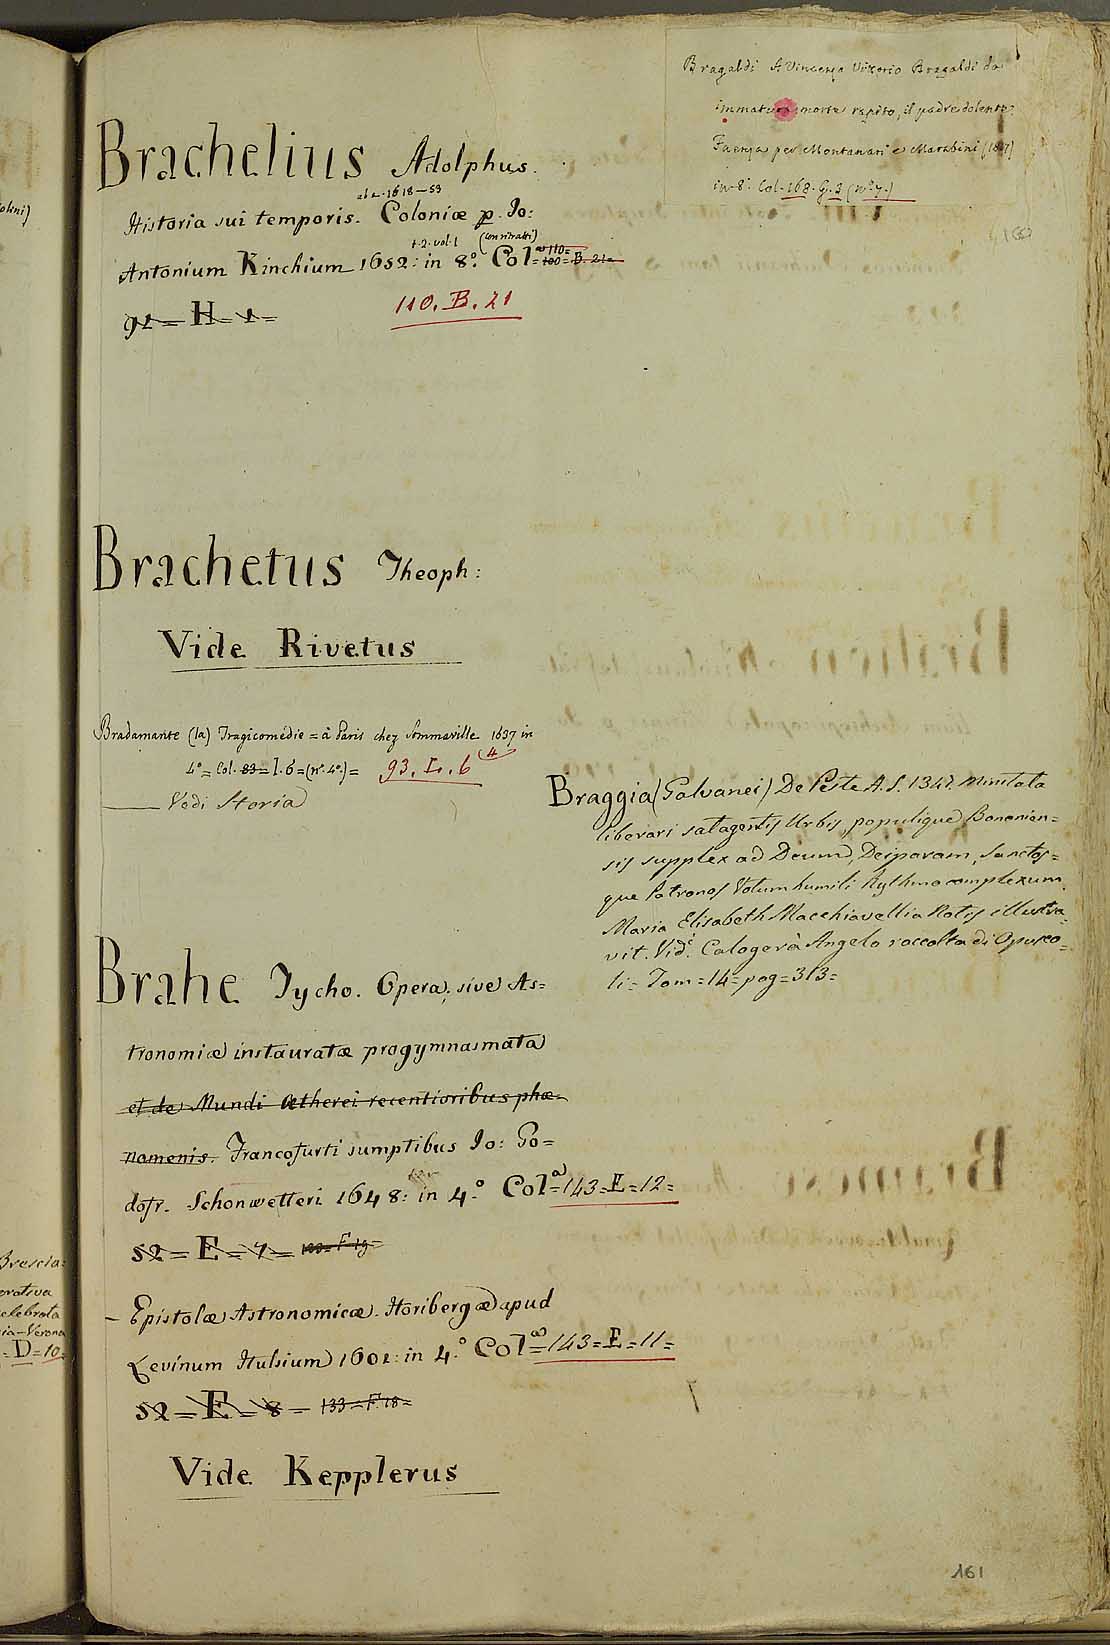 Bragaldi A Vincenzo Vittorio Bragaldi da
immatura morte rapito, il padre dolente.
Faenza per Montanari e Marabini (1847)
in 8º. Col. 168. G. 3 (nº 7.)
Brachelius Adolphus.
ab a. 1618-53
Historia sui temporis. Coloniæ p. Jo:
t. 2. vol. 1 (con ritratti)
Antonium Kinchium 1652: in 8º. Colª= 100= 110= B. 21=
92= H= 1=
110. B. 21
Brachetus Theoph:
Vide Rivetus
Bradamante (la) Tragicomedie = à Paris chez Sommaville 1637 in
4º= Col. 83= I. 6= (nº. 4º.)= 93. I. 6 4
Vedi Storia
Braggia (Galvanei) De Peste A. S. 1347. Minitata
liberari satagentis Urbis, populique Bononien=
sis supplex ad Deum, Deiparam, Sanctos=
que Patronos Votum humili Rythmo complexum.
Maria Elisabeth Macchiavellia Notis illustra=
vit. Vid. Calogerà Angelo raccolta di Opusco=
li= Tom= 14= pag= 313=
Brahe Tycho. Opera, sive As=
tronomiæ instauratæ progymnasmata
et de Mundi ætherei recentioribus phæ=
nomenis. Francofurti sumptibus Jo: Go=
dofr. Schonwetteri 1648: in 4º. Colª= 143= E= 12=
52= E= 7= 133= F. 19=
- Epistolæ Astronomicæ. Noribergæ apud
Levinum Hulsium 1601: in 4º. Colª= 143= E= 11=
52= E= 8= 133= F. 18=
Vide Kepplerus
161
olini)
Brescia:
orativa
celebrata
ia-Verona
= D= 10=